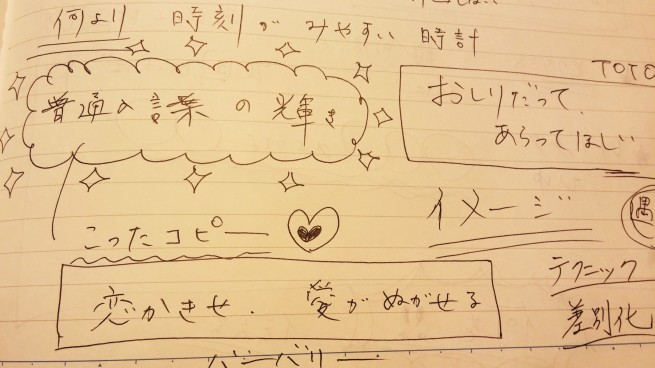 何より 時刻がみやすい時計
TOTO
普通の言葉の輝き
おしりだって、
あらってほしい
イメージ
こったコピー
テクニック
恋がきせ、愛がぬがせる
差別化
バーバリー